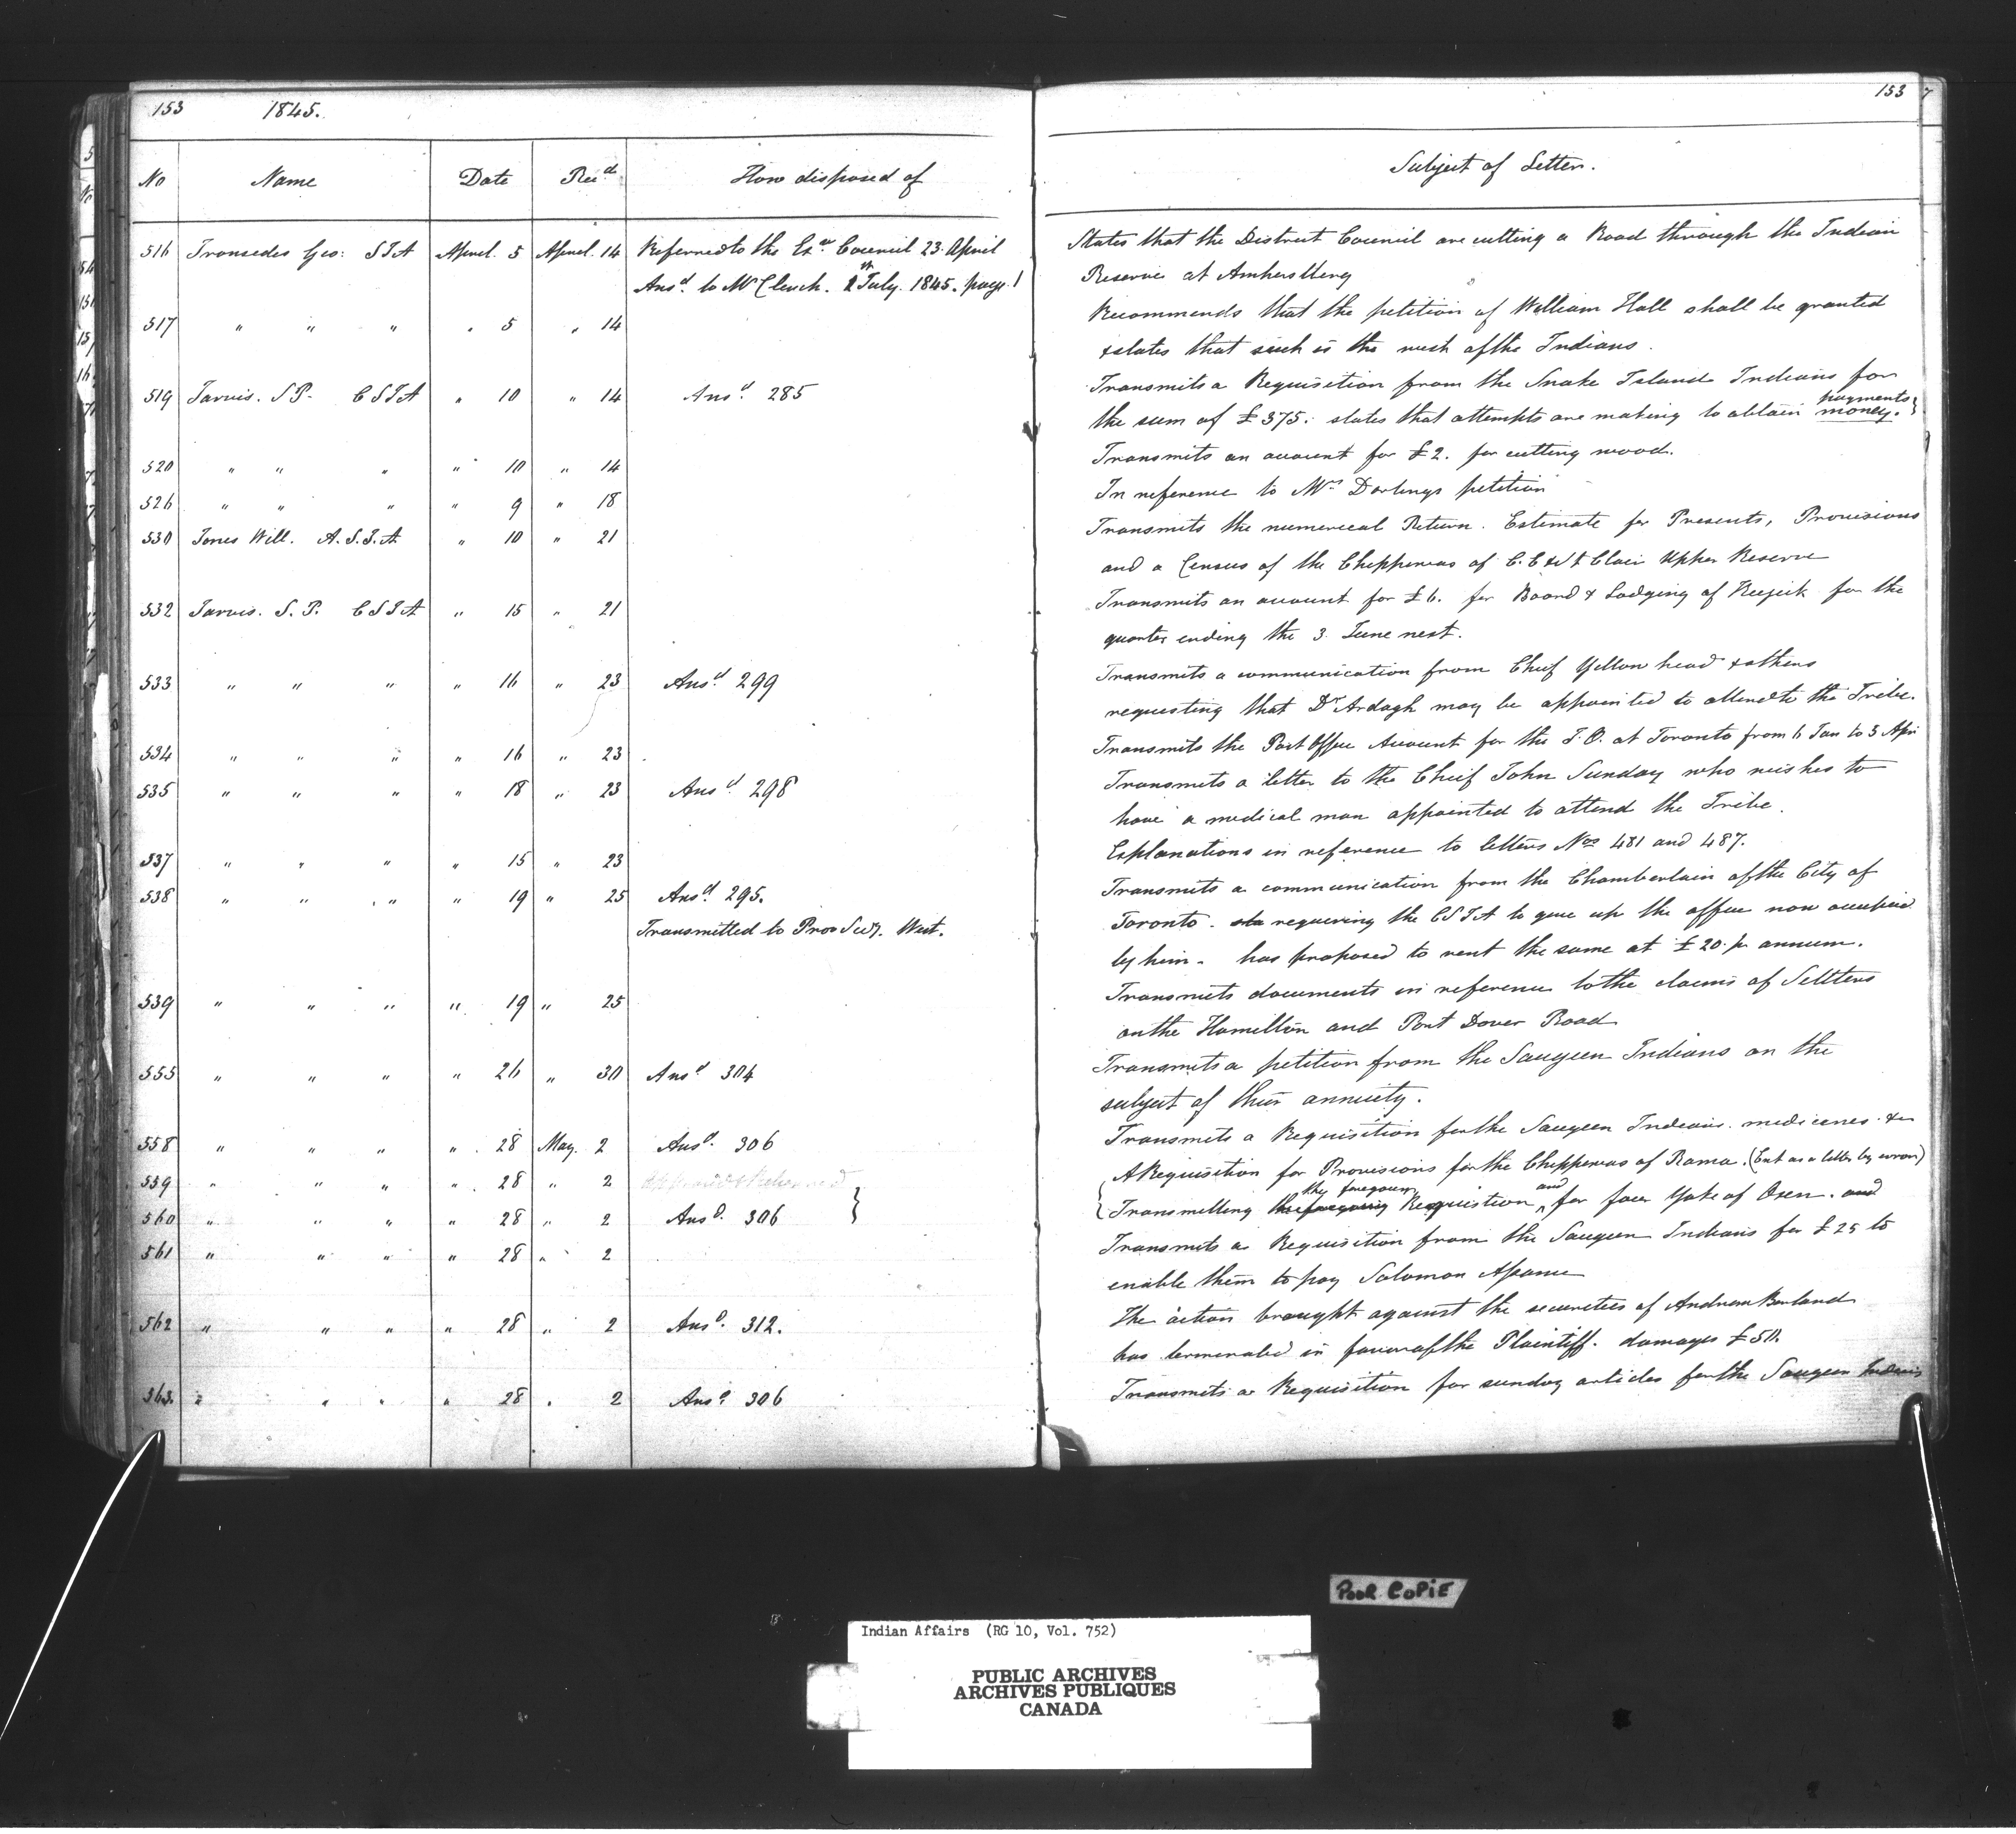 153 1845.
No Name Date Recd How disposed of
516 Ironsides Geo: SIA April. 5 April. 14 Referred to the Exve Council 23 April
Ansd. to Mr Clench. 2 July. 1845. page 1
517 " " " " 5 " 14
519 Jarvis. S P. CSIA " 10 " 14 Ansd. 285
520 " " " " 10 " 14
526 " " " " 9 " 18
530 Jones Will. A.S.I.A. " 10 " 21
532 Jarvis. S. P. CSIA " 15 " 21
533 " " " " 16 " 23 Ansd. 299
534 " " " " 16 " 23
535 " " " " 18 " 23 Ansd. 298
537 " " " " 15 " 23
538 " " " " 19 " 25 Ansd. 295.
Transmitted to Prov Secy. West.
539 " " " " 19 " 25
555 " " " " 26 " 30 Ansd 304
558 " " " " 28 May. 2 Ansd. 306
559 " " " " 28 " 2
560 " " " " 28 " 2 Ansd. 306 }
561 " " " " 28 " 2
562 " " " " 28 " 2 Ansd. 312.
563. " " " " 28 " 2 Ansd 306
153
Subject of Letter.
States that the District Council are cutting a Road through the Indian
Reserve at Amherstberg
Recommends that the petition of William Hall shall be granted
& states that such is the wish of the Indians.
Transmits a Requisition from the Snake Island Indians for
the sum of £375: states that attempts are making to obtain payments money. }
Transmits an account for £2. for cutting wood.
In reference to Mrs Darlings petition
Transmits the numerical Return. Estimate for Presents, Provisions
and a Census of the Chippewas of Clair Upper Reserve
Transmits an account for £6. for Board & Lodging of Keejick for the
quarter ending the 3 June next.
Transmits a communication from Chief Yellowhead & others
requesting that Dr Ardagh may be appointed to attend to the Tribe.
Transmits the Post Office Account for the I.O. at Toronto from 6 Jan to 5 Apri
Transmits a letter to the Chief John Sunday who wishes to
have a medical man appointed to attend the Tribe.
Explanations in reference to letters Nos 481 and 487.
Transmits a communication from the Chamberlain of the City of
Toronto. requiring the CSIA to give up the office now occupied
by him. has proposed to rent the same at £20 pr annum.
Transmits documents in reference to the claims of Settlers
on the Hamilton and Port Dover Road
Transmits a petition from the Saugeen Indians on the
subject of their annuity.
Transmits a Requisition for the Saugeen Indians. medicines &c
A Requisition for Provisions for the Chippewas of Rama. (Ent as a letter by error)
{ Transmitting the foregoing Requistion and for four Yoke of Oxen. and
Transmits a Requisition from the Saugeen Indians for £25 to
enable them to pay Solomon
The action brought against the securities of Andrew Borland
has terminated in favor of the Plaintiff. damages £50.
Transmits a Requisition for sundry articles for the Saugeen Indians
POOR COPIE
Indian Affairs (RG 10, Vol. 752)
PUBLIC ARCHIVES
ARCHIVES PUBLIQUES
CANADA